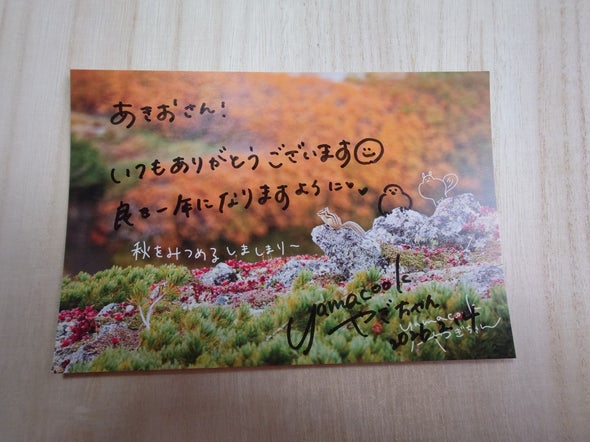 あきおさん!
いつもありがとうございます
良き一年になりますように
秋をみつめるしましまり〜
yamacook
やぎちゃん
2026.2.4
yamacook
やぎちゃん